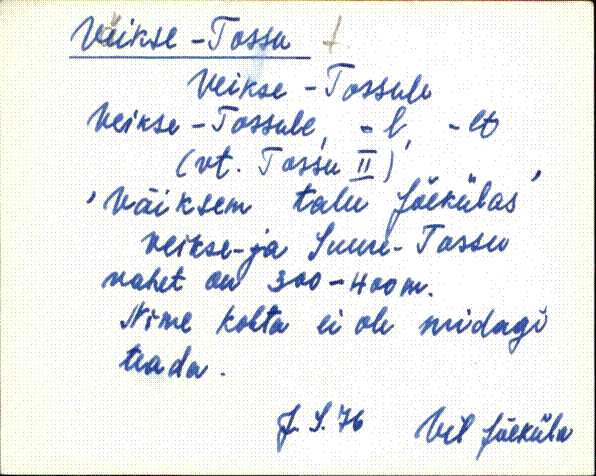 Veikse-Tossu t
Veikse-Tossule
Veikse-Tossule, -l, -lt
(vt. Tossu II)
'Väiksem talu Jõekülas'
Veikse-ja Suure-Tossu
vahet on 300-400m.
Nime kohta ei ole midagi
teada.
J. S. 76 Vil Jõeküla